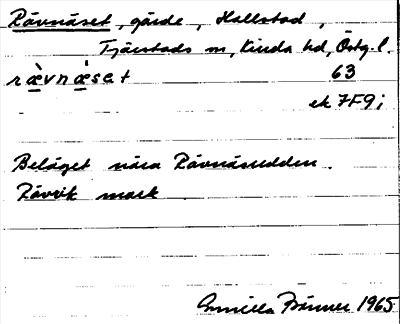 Rävnäset, gärde, Hallstad,
Tjärstads sn, Kinda hd, Östg. l.
ræ̀vnæ̀set 63
ek 7F9i
Beläget nära Rävnäsudden.
Rävrik mark.
Gunilla 1965